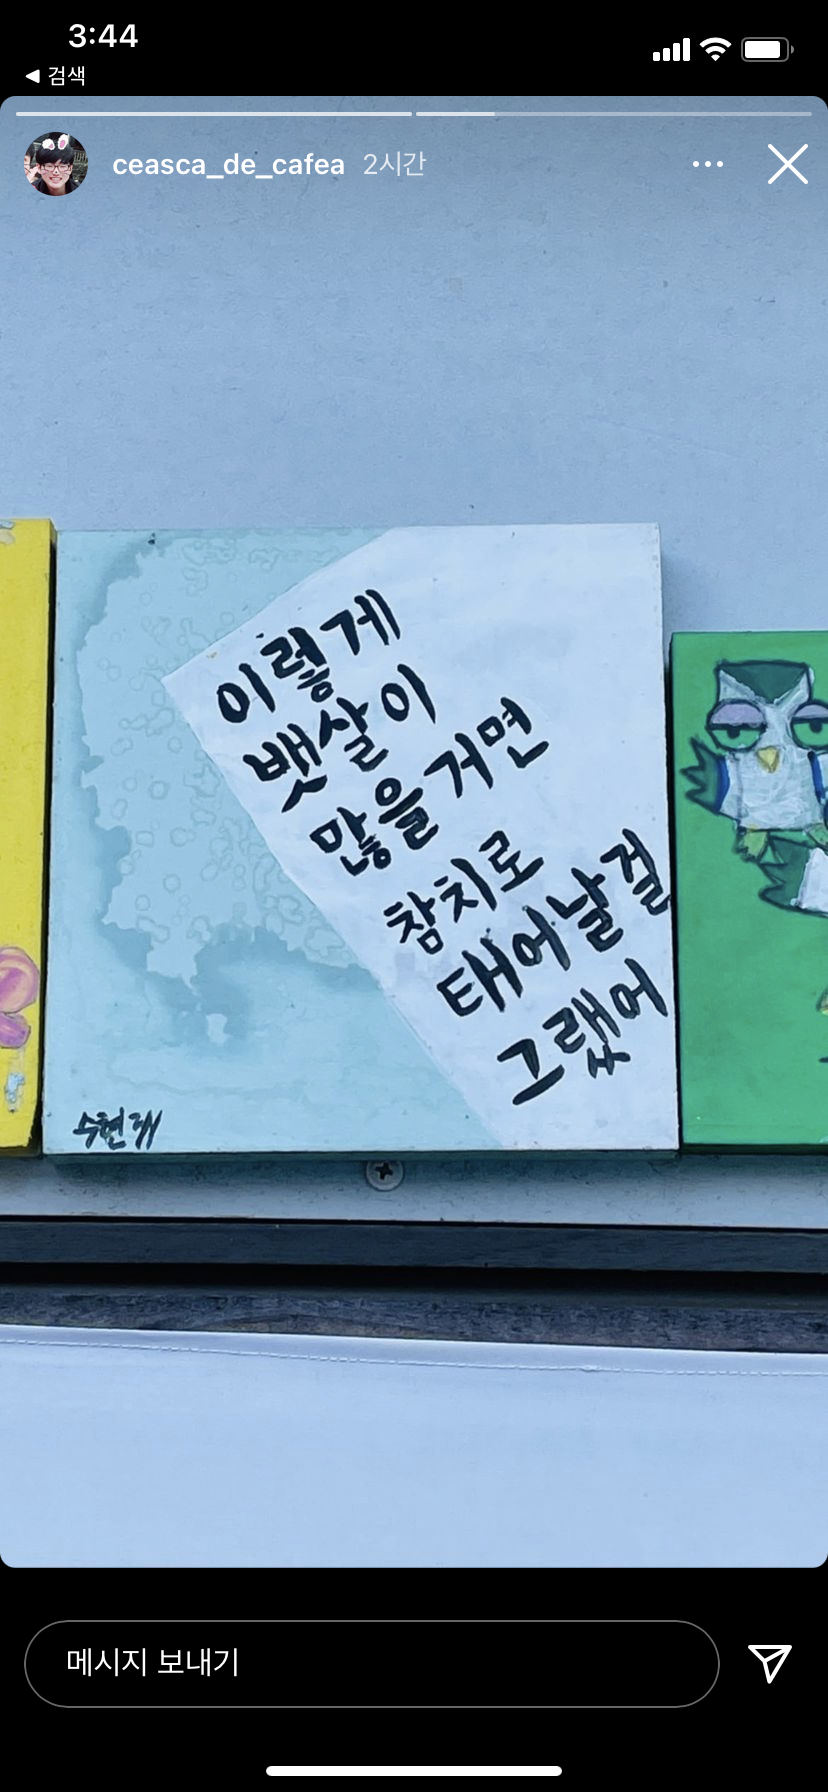 3:44
◀ 검색
ceasca_de_cafea 2시간
이렇게
뱃살이
많을거면
참치로
태어날걸
그랬어
메시지 보내기